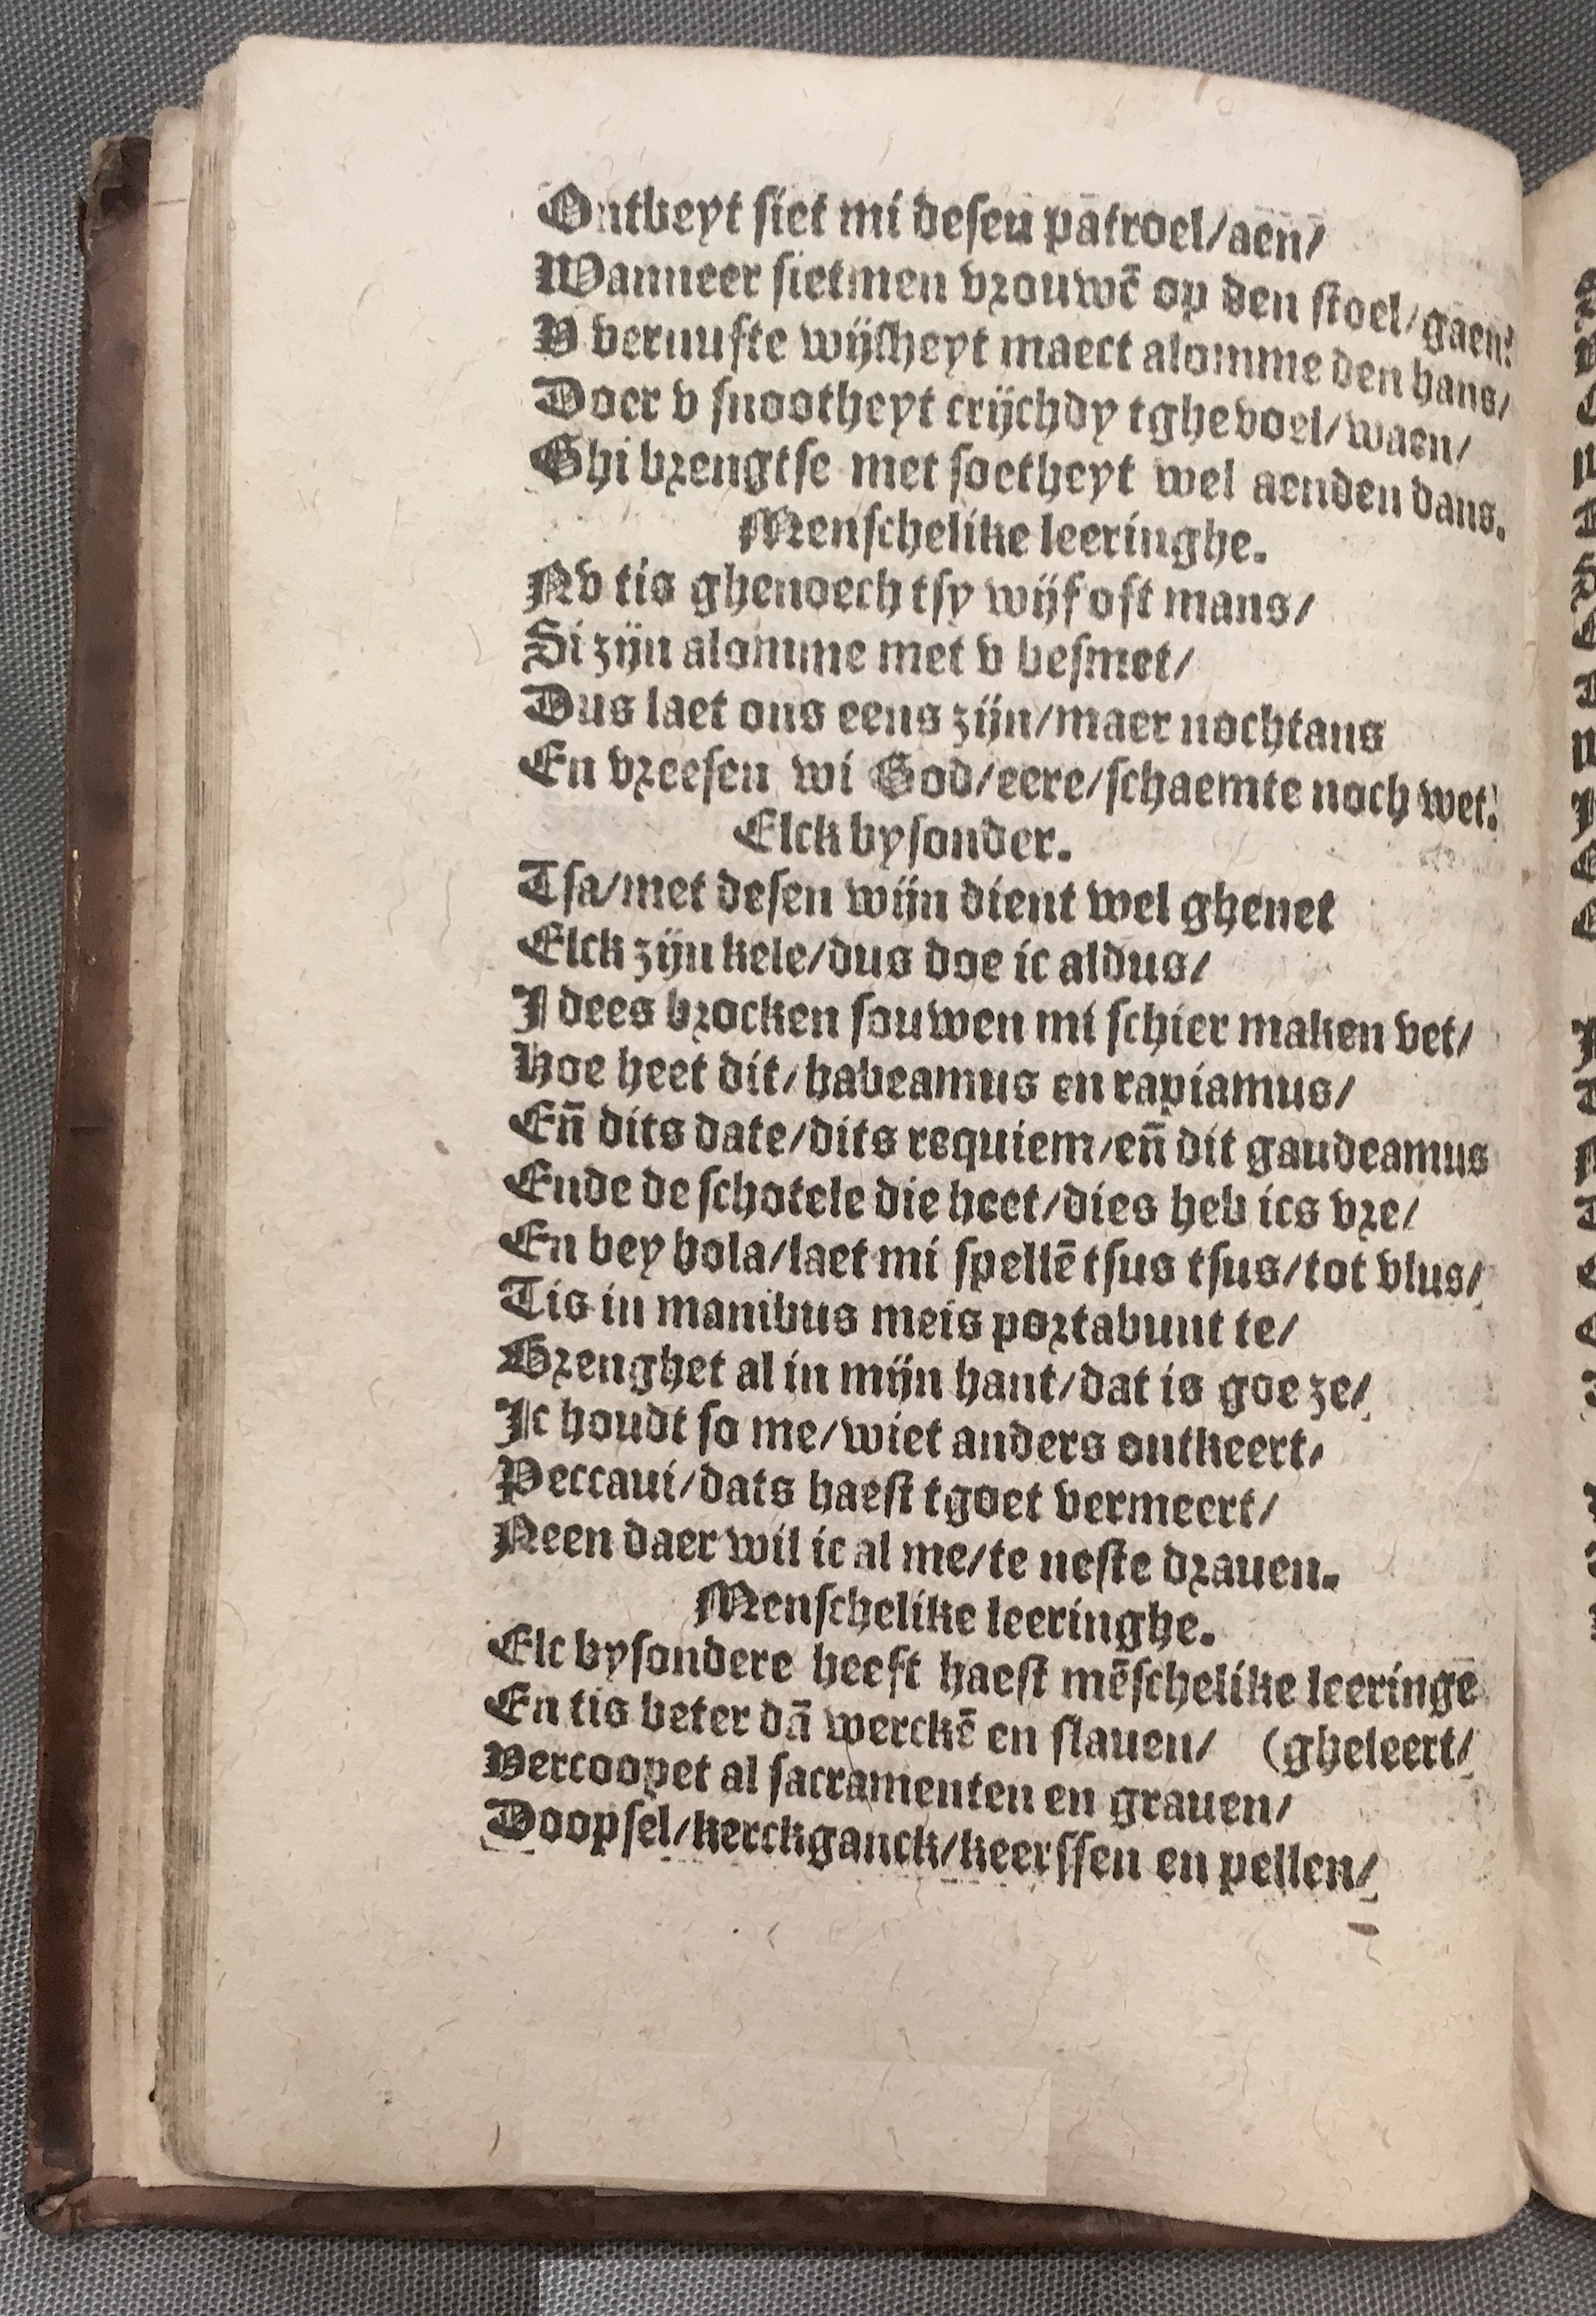 Ontbeyt siet mi desen patroel/aen/
Wanneer sietmen vrouwē op den stoel/gaen?
V vernufte wijsheyt maect alomme den hans/
Doer v snootheyt crijchdy tghevoel/waen/
Ghi brengtse met soetheyt wel aenden dans.
Menschelike leeringhe.
Nv tis ghenoech tsy wijf oft mans/
Si zijn alomme met v besmet/
Dus laet ons eens zijn/maer nochtans
En vreesen wi God/eere/schaemte noch wet.
Elck bysonder.
Tsa/met desen wijn dient wel ghenet
Elck zijn kele/dus doe ic aldus/
J dees brocken souwen mi schier maken vet/
Hoe heet dit/habeamus en rapiamus/
Eñ dits date/dits requiem/eñ dit gaudeamus
Ende de schotele die heet/dies heb ics vre/
En bey hola/laet mi spellē tsus tsus/tot vlus/
Tis in manibus meis portabunt te/
Brenghet al in mijn hant/dat is goe ze/
Jc houdt so me/wiet anders ontkeert/
Peccaui/dats haest tgoet vermeert/
Neen daer wil ic al me/te neste drauen.
Menschelike leeringhe.
Elc bysondere heeft haest mēschelike leeringe
En tis beter dā werckē en slauen/ (gheleert/
Vercoopet al sacramenten en grauen/
Doopsel/kerckganck/keerssen en pellen/